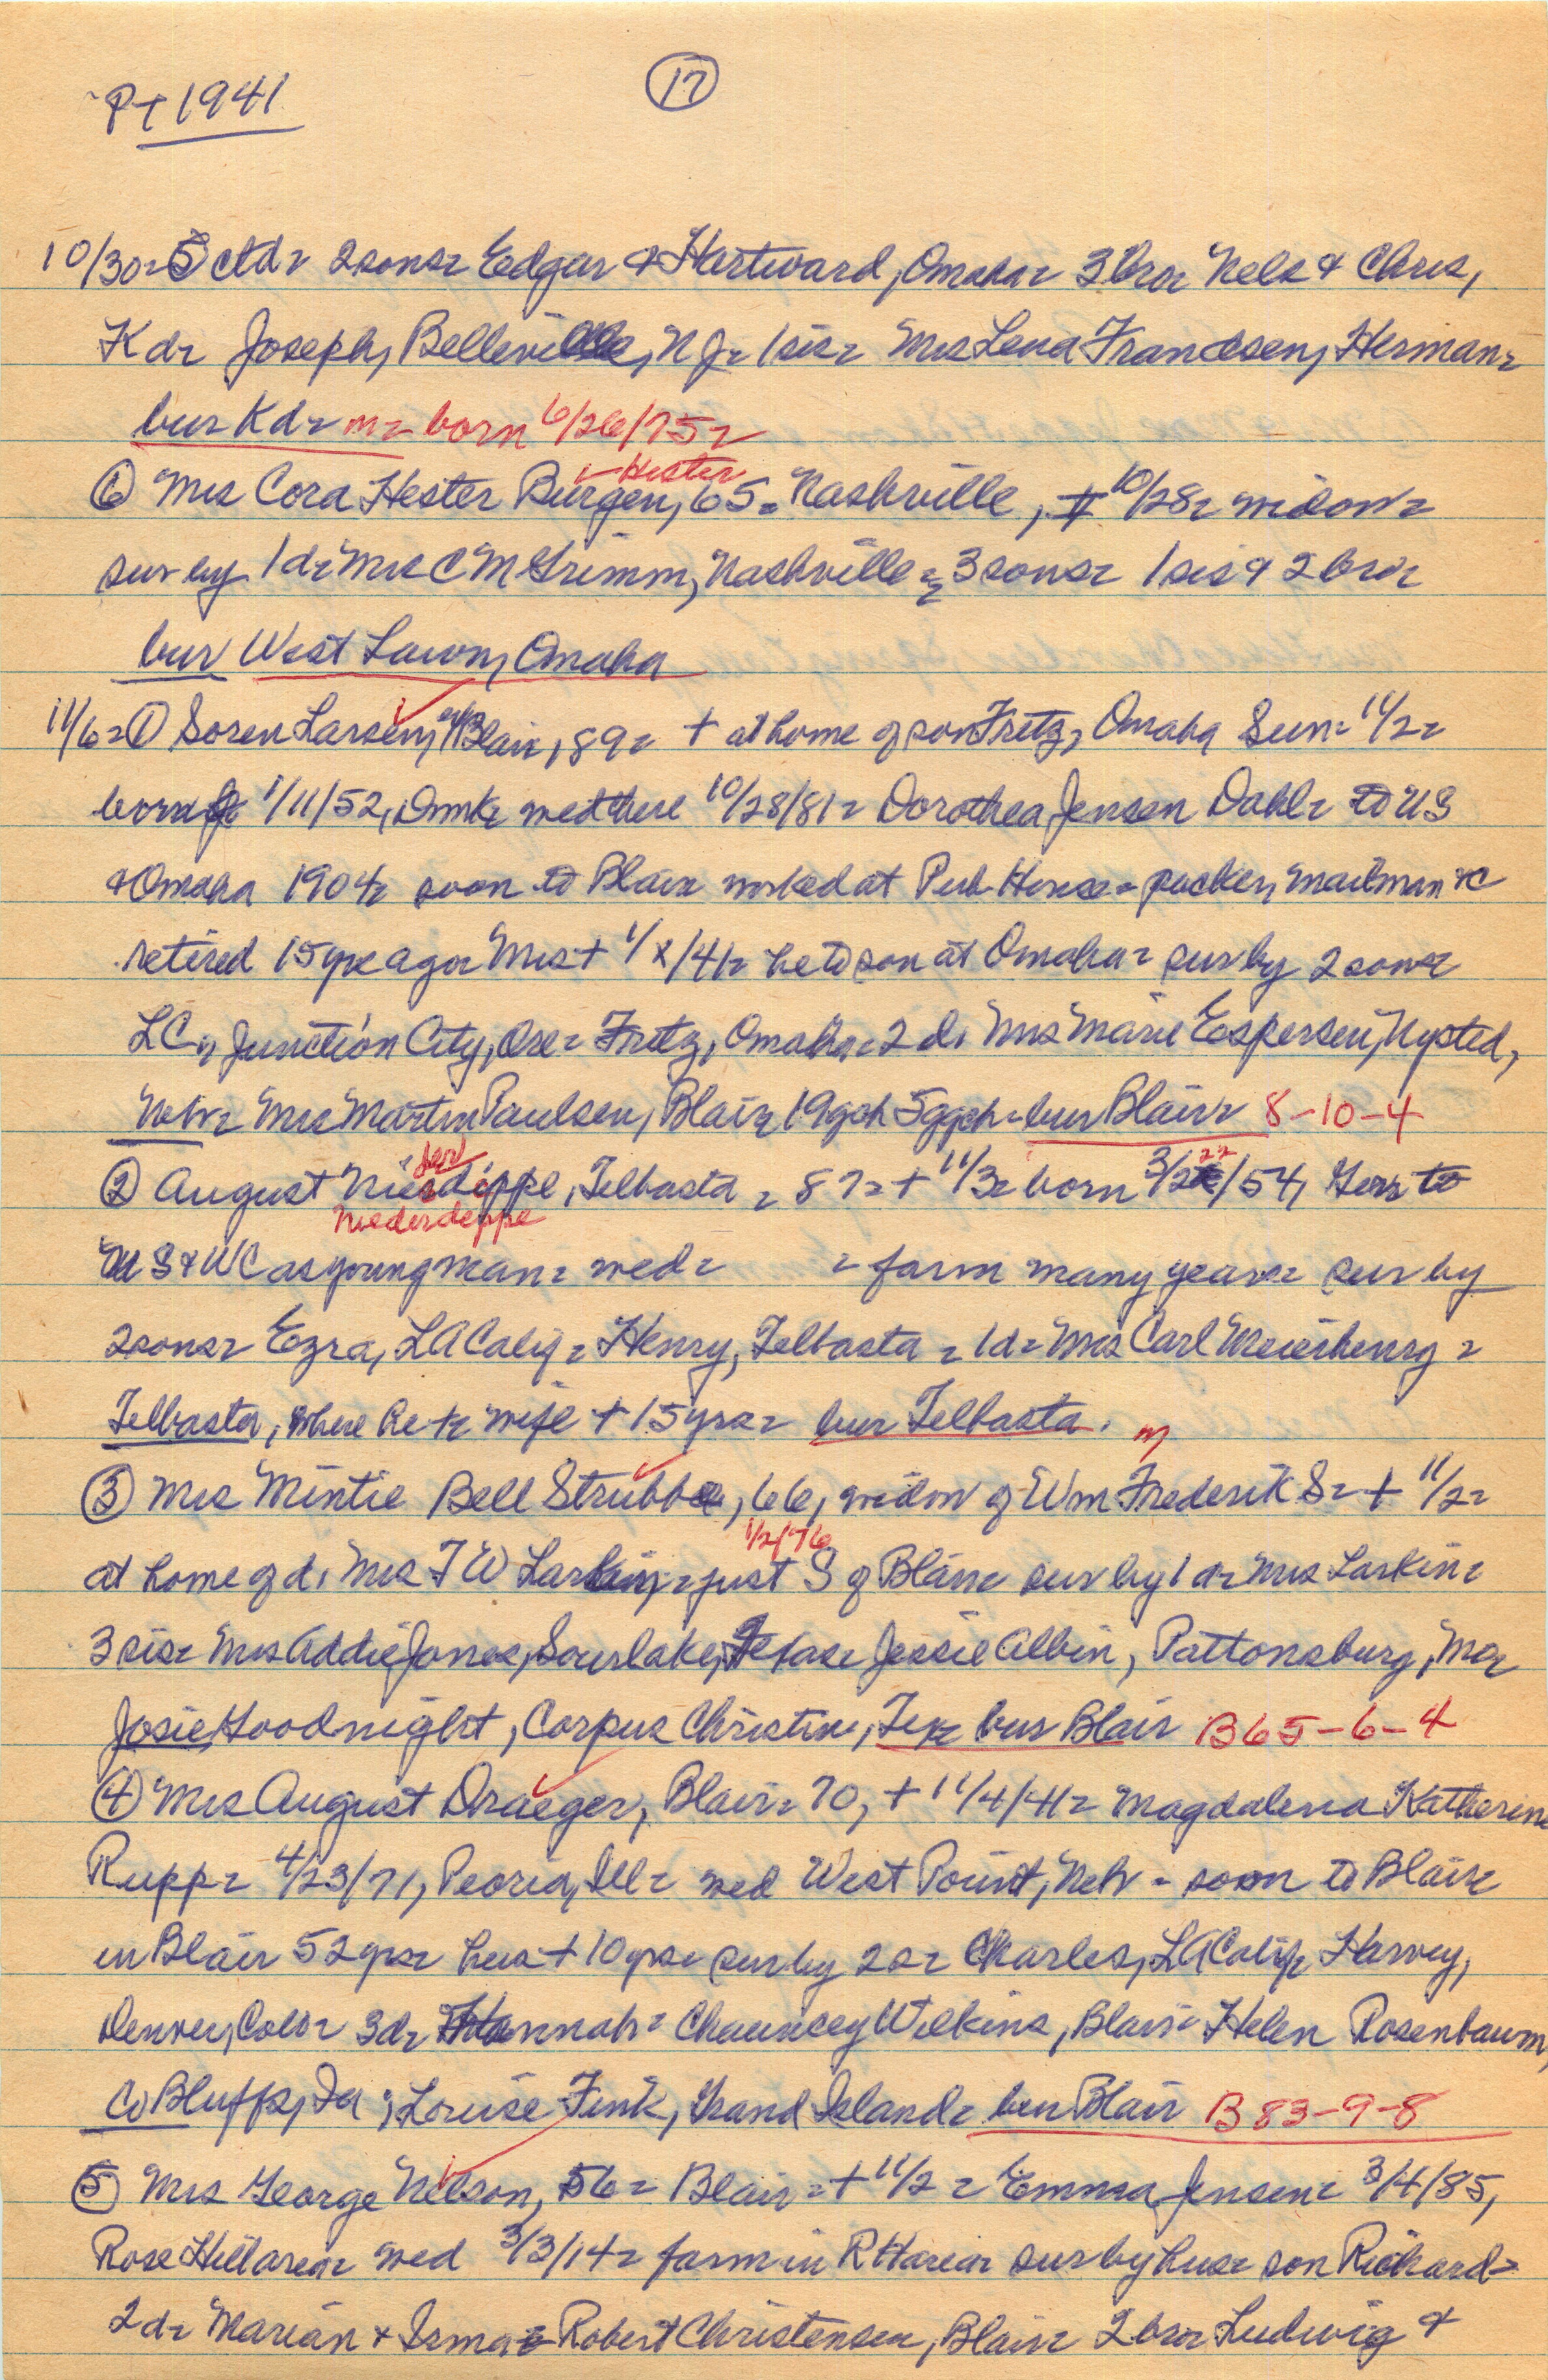 PT 1941
17
10/30 = 5 ctd = 2 sons = Edgar & Hartward, Omaha = 3 bro = Nels & Chris,
Kd = Joseph, Belleville, NJ = 1 sis = Mrs Lena Francsen, Herman =
bur Kd = m = born 6/26/75 =
Hester
6 Mrs Cora Hester Burgen, 65 = Nashville, + 10/28 = widow =
sur by 1 d = Mrs C M Grimm, Nashville = 3 sons = 1 sis & 2 bro =
bur West Lawn, Omaha
11/6 = 1 Soren Larsen, Blair, 89 = + at home of son Fretz, Omaha Sun = 11/2 =
born 1/11/52, Dnmk = wed there 10/28/81 = Dorothea Jensen Dahl = to US
& Omaha 1904 = soon to Blair = worked at Pub House = packer, mailman &c
retired 15 yrs ago = Mrs + 1/8/41 = he to son at Omaha = sur by 2 sons =
LC, Junction City, Ore = Fretz, Omaha = 2 d, Mrs Marie Espersen, Nysted,
Nebr = Mrs Martin Paulsen, Blair, 19 gch 5 ggch = bur Blair = 8-10-4
der
2 August Niesdippe, Telbasta = 87 = + 11/3 = born 3/22/54, Germ to
Niederdeppe
US & WC as young man = wed = = farm many years = sur by
2 sons = Ezra, LA Calif = Henry, Telbasta = 1 d = Mrs Carl Meierhenry =
Telbasta, where he + = wife + 15 yrs = bur Telbasta. m
3 Mrs Mintie Bell Strubbe, 66, widow of Wm Frederik S = + 11/2 =
1/2/76
at home of d, Mrs T W Larkin, = just S of Blair = sur by 1 d = Mrs Larkin =
3 sis = Mrs Addie Jones, Sourlake, Texas = Jessie Albin, Pattonsburg, Mo =
Josie Goodnight, Corpus Christie, Tex = bur Blair B 65-6-4
4 Mrs August Draeger, Blair = 70, + 11/4/41 = Magdalena Katherine
Rupp = 4/23/71, Peoria, Ill = wed West Point, Nebr - soon to Blair =
in Blair 52 yrs = hus + 10 yrs = sur by 2 s = Charles, LA Calif = Harvey,
Denver, Colo = 3 d = Hannah = Chauncey Wilkins, Blair = Helen Rosenbaum,
Co Bluffs, Ia; Louise Fink, Grand Island = bur Blair B 83-9-8
5 Mrs George Nelson, 56 = Blair = + 11/2 = Emma Jensen = 3/4/85,
Rose Hill area = wed 3/3/14 = farm in RH area = sur by hus = son Richard =
2 d = Marian & Irma = Robert Christensen, Blair = 2 bro = Ludwig &